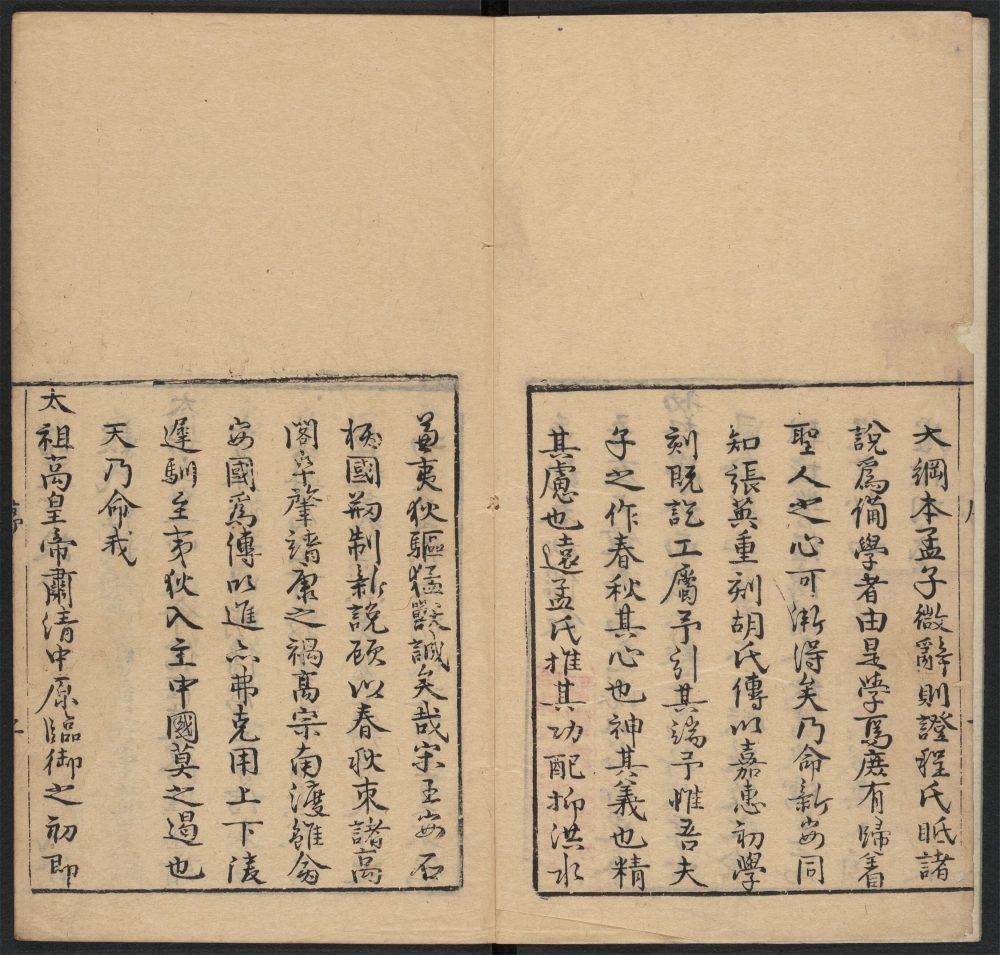 大綱本孟子微辭則證程氏眂諸
說爲備學者由是學焉庶有歸着
聖人之心可漸得矣乃命新安同
知張英重刻胡氏傳以嘉惠初學
刻既訖工屬予引其端予惟吾夫
子之作春秋其心也神其義也精
其慮也遠孟氏推其功配抑洪水
兼夷狄驅猛獸誠矣哉宋王安石
柄國剏制新說顧以春秋束諸高
閣卒肇靖康之禍高宗南渡雖命
安國爲傳以進亦弗克用上下淩
遲馴至夷狄入主中國莫之遏也
天乃命我
太祖高皇帝肅清中原臨御之初即